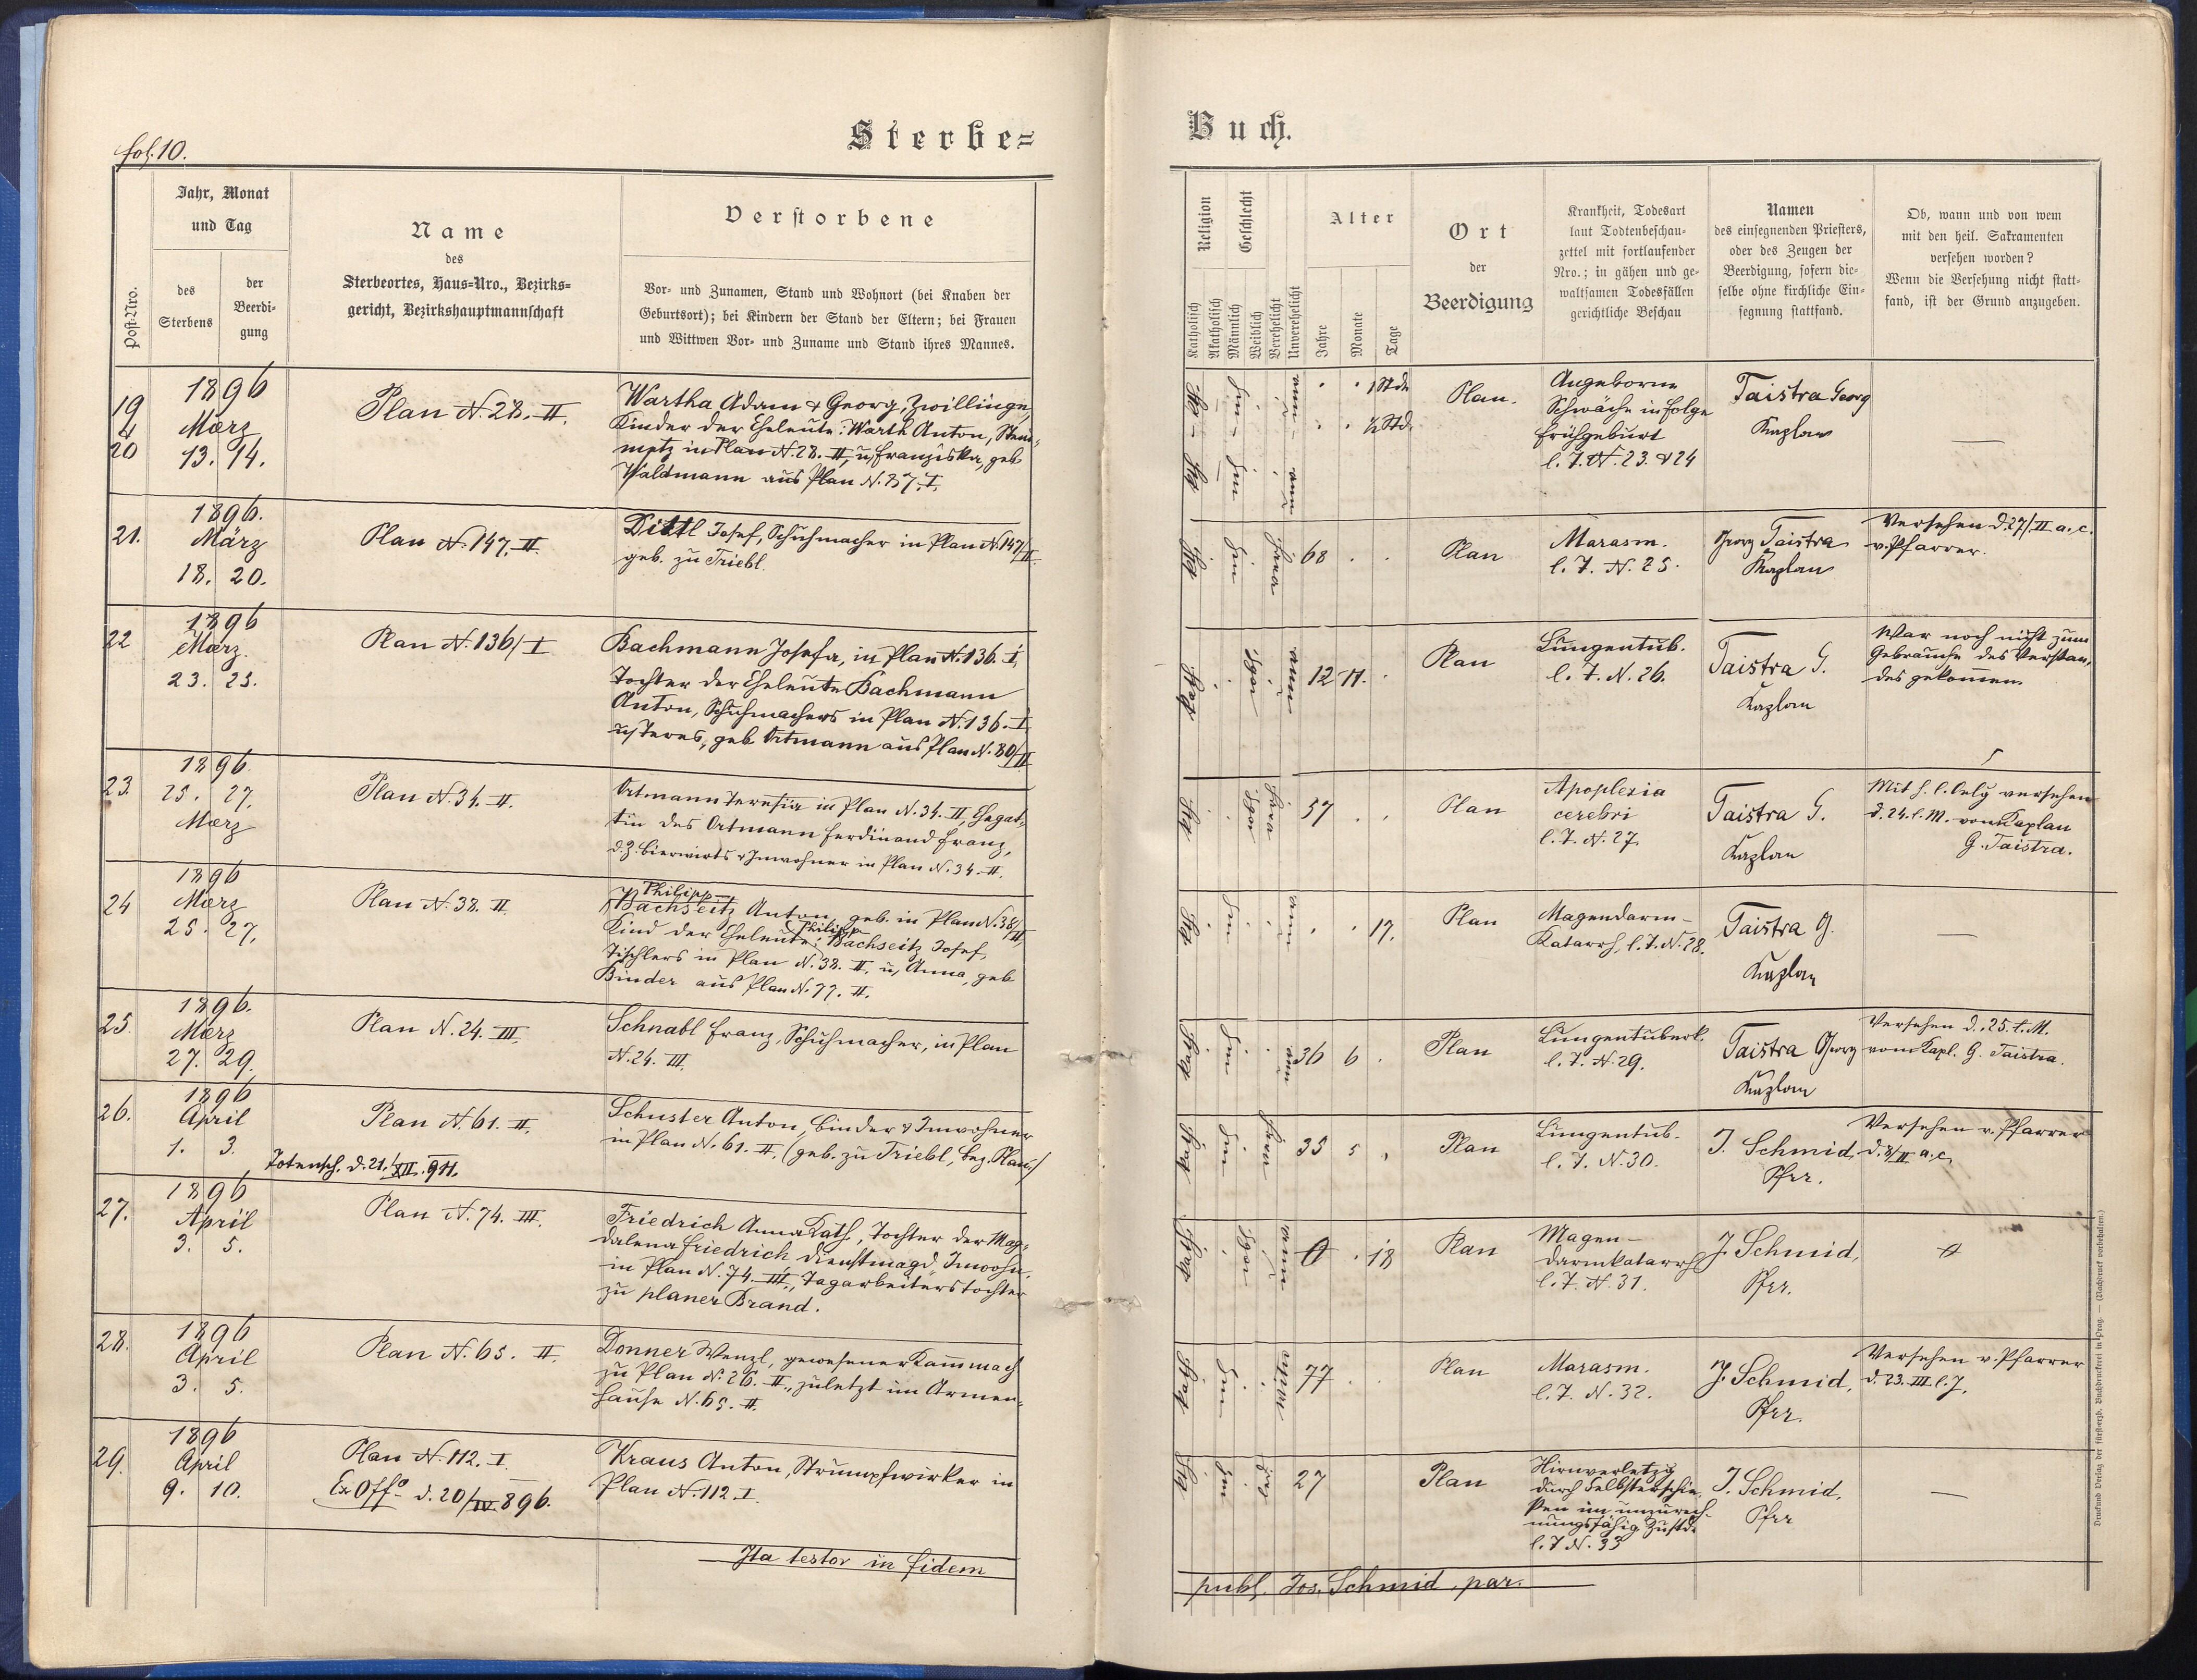 fol. 10.
Sterbe=
Buch.
Post=Nro.
Jahr, Monat
und Tag
des
Sterbens
der
Beerdi-
gung
Name
des
Sterbeortes, Haus=Nro., Bezirks=
gericht, Bezirkshauptmannschaft
Verstorbene
Vor- und Zunamen, Stand und Wohnort (bei Knaben der
Geburtsort); bei Kindern der Stand der Eltern; bei Frauen
und Wittwen Vor- und Zuname und Stand ihres Mannes.
Religion
Katholisch
Akatholisch
Geschlecht
Männlich
Weiblich
Verehelicht
Unverehelicht
Alter
Jahre
Monate
Tage
Ort
der
Beerdigung
Krankheit, Todesart
laut Todtenbeschau-
zettel mit fortlaufender
Nro.; in gähen und ge-
waltsamen Todesfällen
gerichtliche Beschau
Namen
des einsegnenden Priesters,
oder des Zeugen der
Beerdigung, sofern die-
selbe ohne kirchliche Ein-
segnung stattfand.
Ob, wann und von wem
mit den heil. Sakramenten
versehen worden?
Wenn die Versehung nicht statt-
fand, ist der Grund anzugeben.
19
&
20
1896
März
13. 14.
Plan N. 28. II.
Wartha Adam & Georg, Zwillinge,
Kinder der Eheleute: Warth Anton, Stein-
metz in Plan N. 28. II, u. Franziska, geb
Waldmann aus Plan N. 87. I.
1 Std.
½ Std.
Plan.
Angeborne
Schwäche infolge
Frühgeburt
l. Z. N. 23. & 24
Taistra Georg
Kaplan
—
21.
1896.
März
18. 20.
Plan N. 147. II.
Dittl Josef, Schuhmacher in Plan N. 147/II
geb. zu Triebl.
68
Plan
Marasm.
l. Z. N. 25.
Georg Taistra
Kaplan
Versehen d. 27/II a. c.
v. Pfarrer.
22
1896
März.
23. 25.
Plan N. 136/I
Bachmann Josefa, in Plan N. 136. I,
Tochter der Eheleute Bachmann
Anton, Schuhmachers in Plan N. 136. I
u. Teres, geb. Ortmann aus Plan N. 80/II
12 11.
Plan
Lungentub.
l. Z. N. 26.
Taistra G.
Kaplan
War noch nicht zum
Gebrauche des Verstan-
des gekommen.
23.
1896
25. 27.
März
Plan N. 34. II.
Ortmann Teresia in Plan N. 34. II, Ehegat-
tin des Ortmann Ferdinand Franz,
d. Z. Bierwirts & Inwohner in Plan N. 34. II.
57
Plan
Apoplexia
cerebri
l. Z. N. 27.
Taistra G.
Kaplan
Mit h. l. Oelg versehen
d. 24. l. M. vom Kaplan
G. Taistra.
24
1896
März
25. 27.
Plan N. 38. II
Philipp
Bachseitz Anton, geb. in Plan N. 38/II,
Kind der Eheleute: Philipp Bachseitz Josef,
Tischlers in Plan N. 38. II. u. Anna, geb
Binder aus Plan N. 77. II.
17.
Plan
Magendarm-
Katarrh, l. Z. N. 28.
Taistra G.
Kaplan
—
25.
1896.
März
27. 29.
Plan N. 24. III.
Schnabl Franz, Schuhmacher, in Plan
N. 24. III.
36 6
Plan
Lungentuberk.
l. Z. N. 29.
Taistra Georg
Kaplan
Versehen d. 25. l. M.
vom Kapl. G. Taistra.
26.
1896
April
1. 3.
Plan N. 61. II.
Totensch. d. 21./XII. 911.
Schuster Anton, Binder & Inwohner
in Plan N. 61. II. (geb. zu Triebl, Bez. Plan)
35 5
Plan
Lungentub.
l. Z. N. 30.
J. Schmid,
Pfrr.
Versehen v. Pfarrer
d. 8/II a. c.
27.
1896
April
3. 5.
Plan N. 74. III.
Friedrich Anna Kath., Tochter der Mag-
dalena Friedrich Dienstmagd, Inwohn.
in Plan N. 74. III., Tagarbeiterstochter
zu planer Brand.
0 18
Plan
Magen-
darmkatarrh
l. Z. N. 31.
J. Schmid,
Pfrr.
0
28.
1896
April
3. 5.
Plan N. 65. II.
Donner Wenzl, gewesener Kammmach
zu Plan N. 26. II., zuletzt im Armen-
hause N. 65. II.
77
Plan
Marasm.
l. Z. N. 32.
J. Schmid,
Pfrr.
Versehen v. Pfarrer
d. 23. III l. J.
29.
1896
April
9. 10.
Plan N. 112. I.
Ex Offo d. 20/IV 896.
Kraus Anton, Strumpfwirker in
Plan N. 112. I.
27
Plan
Hirnverletzg
durch Selbsterschie-
ßen im unzurech-
nungsfähig. Zustde
l. Z N. 33
J. Schmid,
Pfrr
—
Ita testor in fidem
publ. Jos. Schmid, par.
Druck und Verlag der fürsterzb. Buchdruckerei in Prag. — (Nachdruck vorbehalten.)